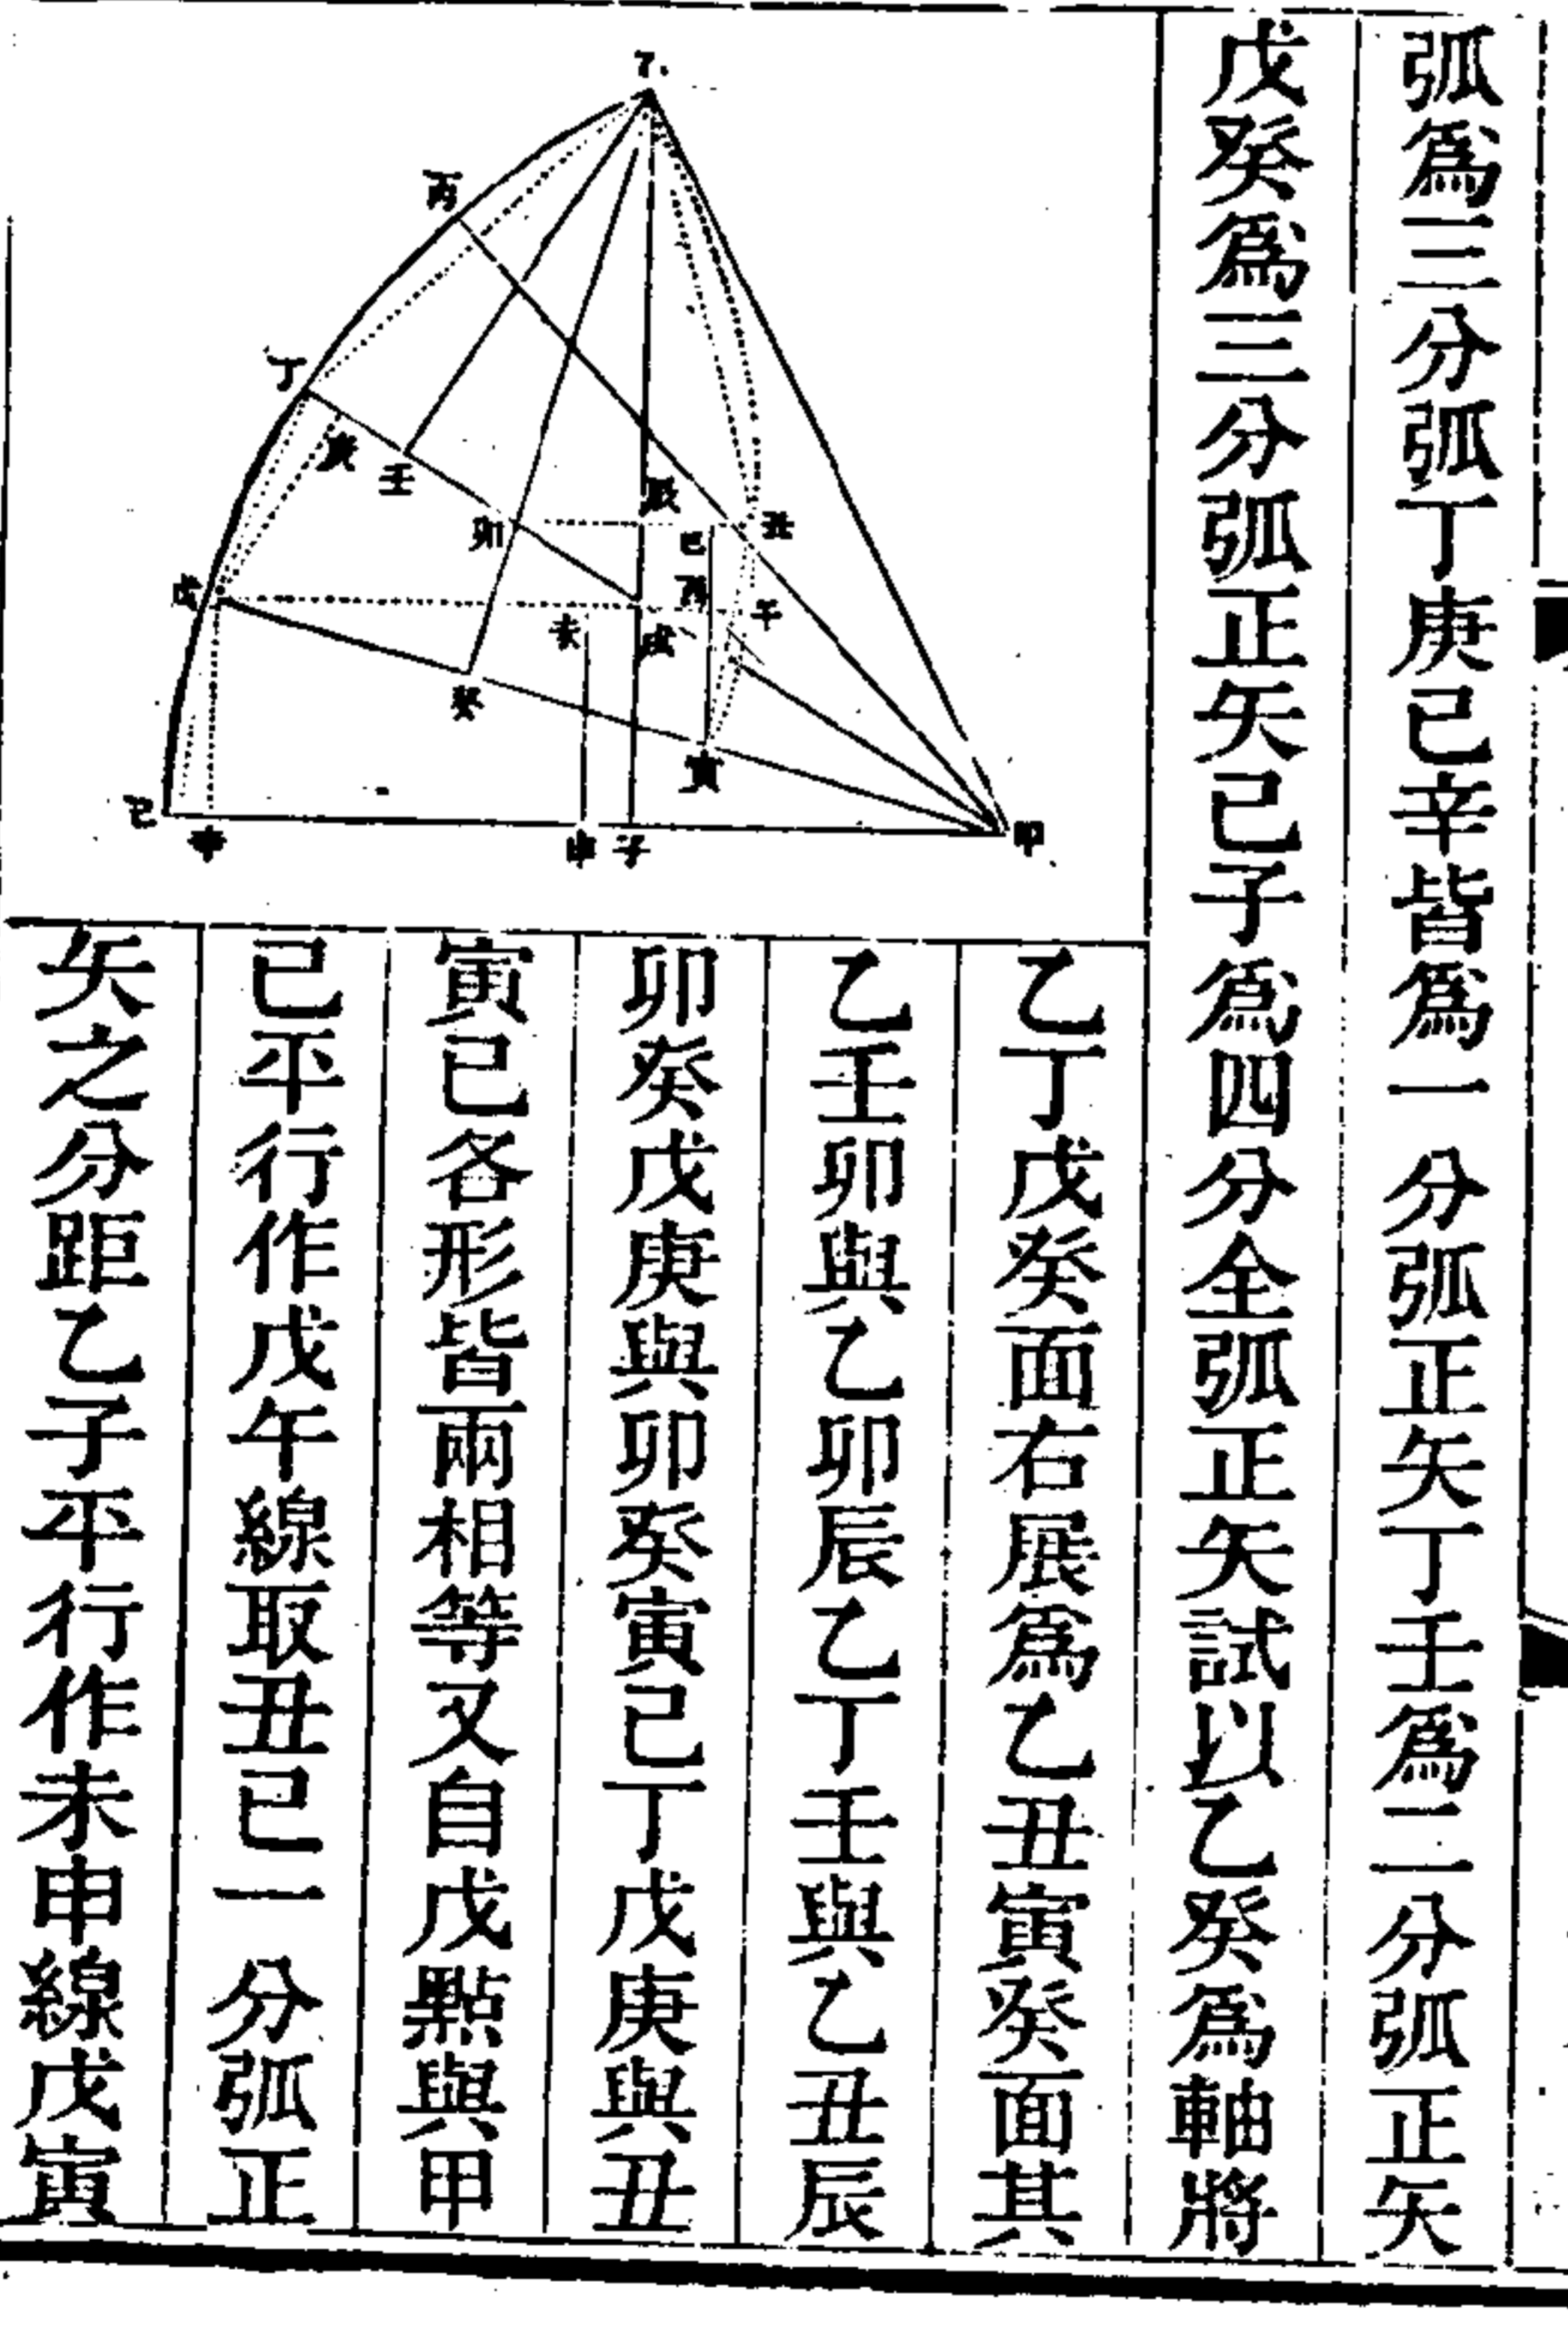 弧爲三分弧丁庚己辛皆爲一分弧正矢丁壬爲二分弧正矢
戊癸爲三分弧正矢己子爲四分全弧正矢試以乙癸爲軸將
乙丁戊癸面右展爲乙丑寅癸面其
乙壬卯與乙卯辰乙丁壬與乙丑辰
卯癸戊庚與卯癸寅巳丁戊庚與丑
寅巳各形皆兩相等又自戊點與甲
己平行作戊午線取丑巳一分弧正
矢之分距乙子平行作未申線戊寅
丙
丁
庚
壬
辰
卯
丑
巳
酉
戊
午
未
戌
癸
寅
己
辛
申
子
甲